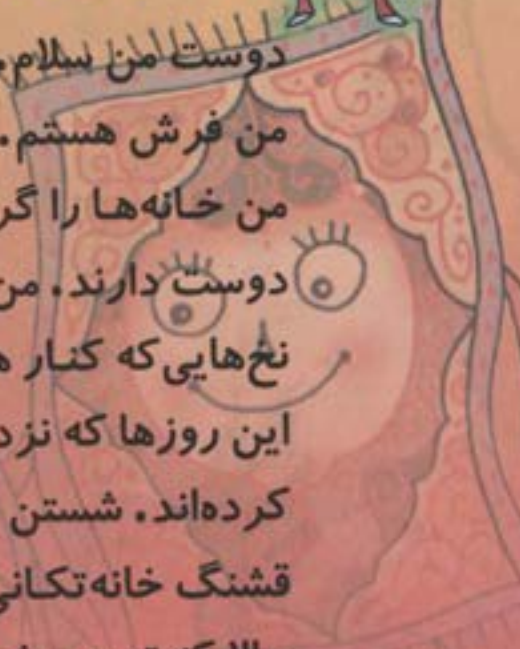 دوست من سلام.
من فرش هستم.
من خانه‌ها را
دوست دارند. من
نخ‌هایی که کنار
این روزها که
کرده‌اند. شستن
قشنگ خانه‌تکانی